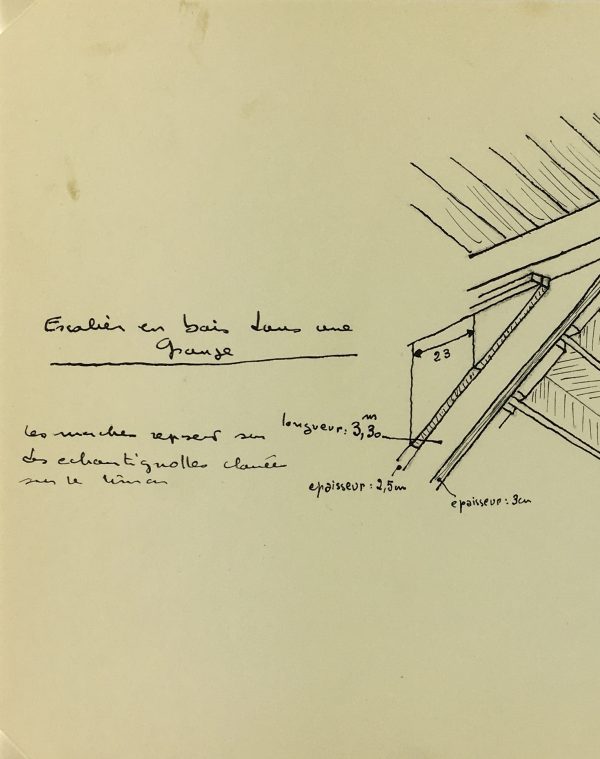 Escalier en bois dans une
Grange
23
longueur: 3,m30
Les marches reposent sur
des echantignolles clouées
sur le limon
epaisseur: 2,5cm
epaisseur: 3cm